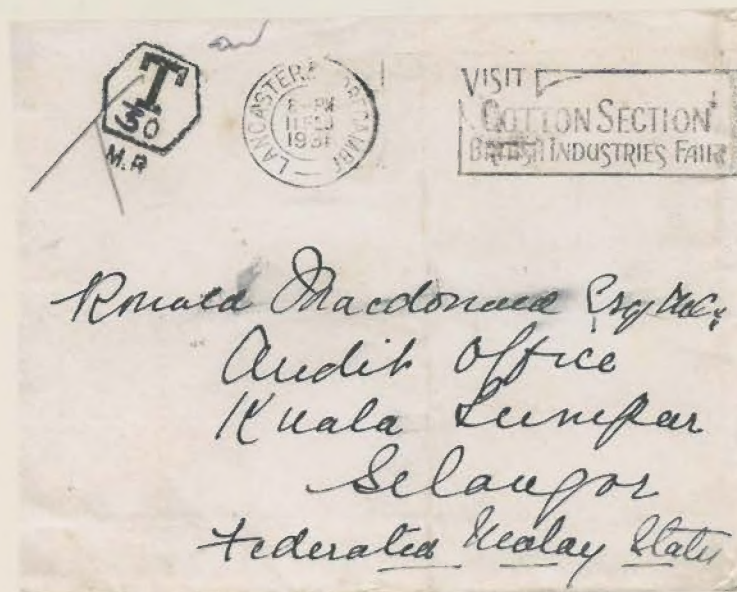 T
30
M.R
LANCASTER
8 - PM
11 FEB
1931
VISIT
COTTON SECTION
BRITISH INDUSTRIES FAIR
Ronald Macdonald Esq
Audit Office
Kuala Lumpur
Selangor
Federated Malay States